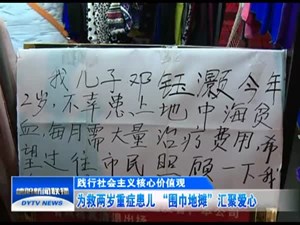 我儿子邓钰灏今年
2岁,不幸患上地中海贫
血,每月需大量治疗费用,希
望过往市民照顾一下我
践行社会主义核心价值观
为救两岁重症患儿 “围巾地摊” 汇聚爱心
DYTV NEWS